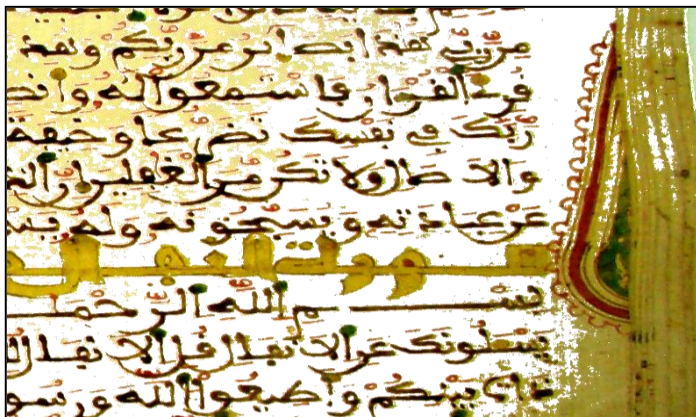 من ربي هذا بصئر من ربكم وهدى
قرئ القرءان فاستمعوا له وأنصـ
ربك في نفسك تضرعا وخيفة
والاصال ولا تكن من الغفلين إن الذ
عن عبادته ويسبحونه وله يسجـ
سورة الانفال
بسم الله الرحمـ
يسئلونك عن الانفال قل الانفال لله
ذات بينكم وأطيعوا الله ورسو